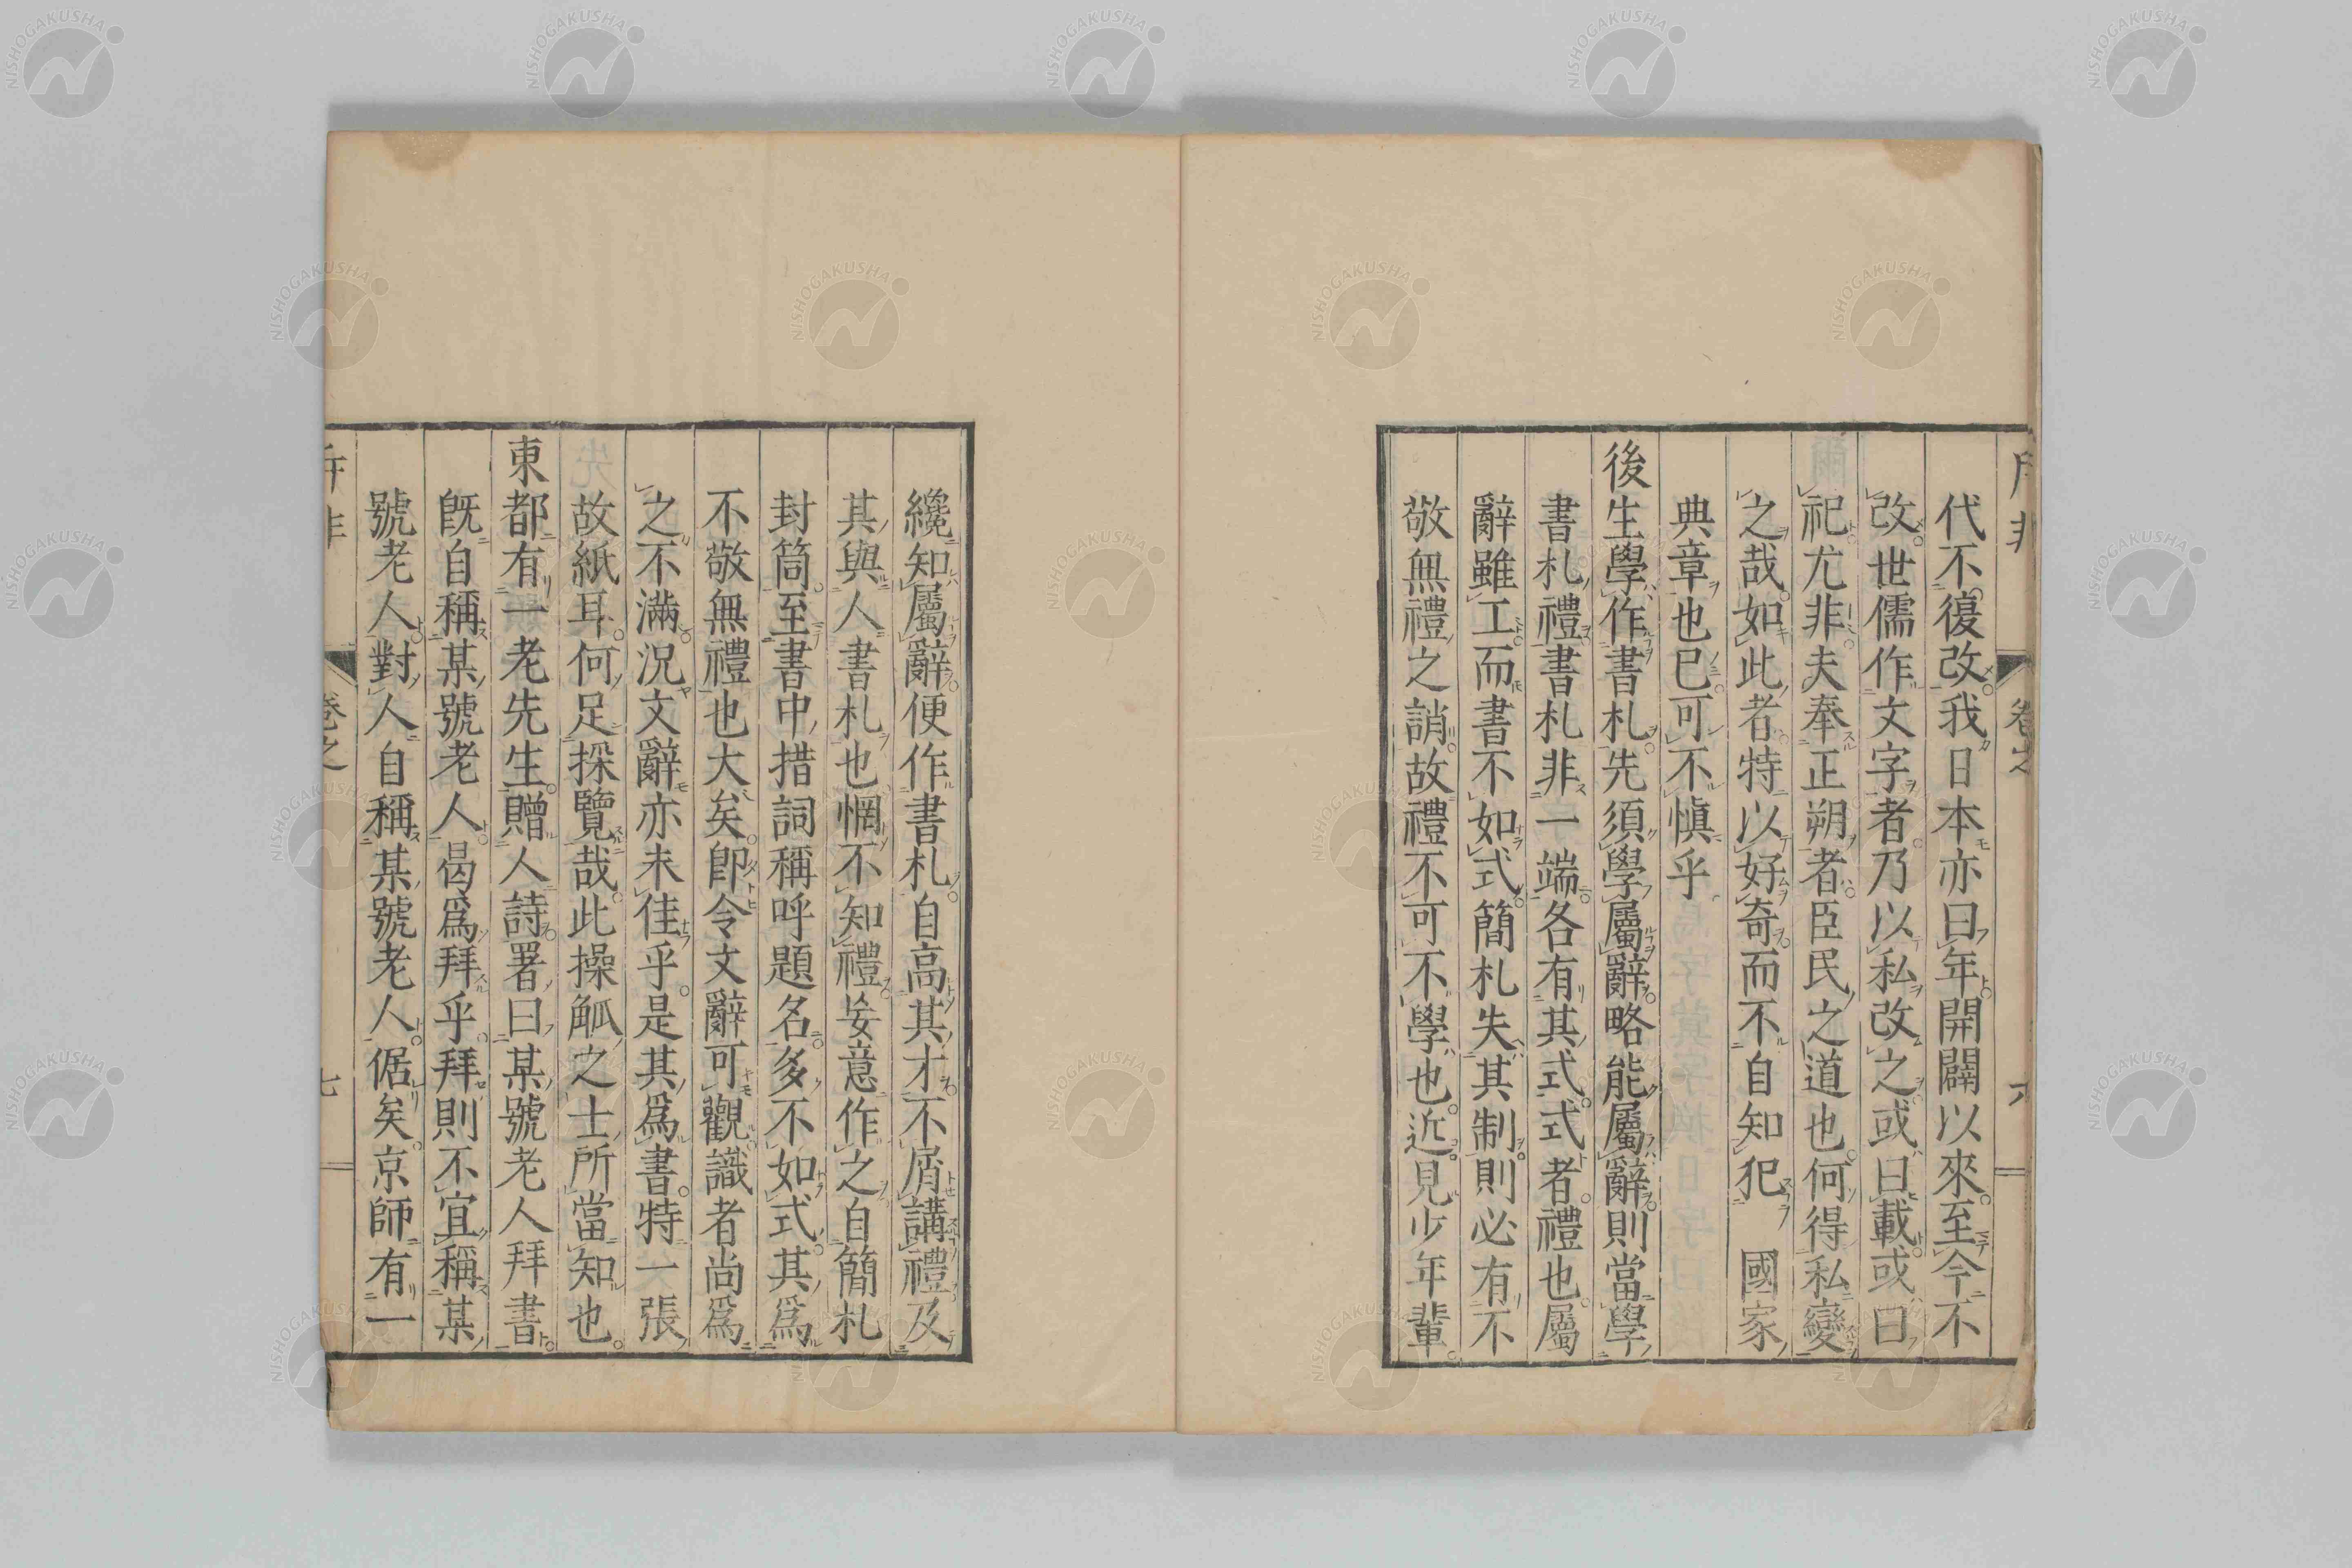 代不復改我日本亦曰年開闢以來至今不
改世儒作文字者乃以私改之或曰載或曰
祀尤非夫奉正朔者臣民之道也何得私變
之哉如此者特以好奇而不自知犯　國家
典章也已可不愼乎
後生學作書札先須學屬辭略能屬辭則當學
書札禮書札非一端各有其式式者禮也屬
辭雖工而書不如式簡札失其制則必有不
敬無禮之誚故禮不可不學也近見少年輩
纔知屬辭便作書札自高其才不屑講禮及
其與人書札也惘不知禮妄意作之自簡札
封筒至書中措詞稱呼題名多不如式其爲
不敬無禮也大矣卽令文辭可觀識者尚爲
之不滿況文辭亦未佳乎是其爲書特一張
故紙耳何足採覽哉此操觚之士所當知也
東都有一老先生贈人詩署曰某號老人拜書
既自稱某號老人曷爲拜乎拜則不宜稱某
號老人對人自稱某號老人倨矣京師有一
卷之
七
NISHOGAKUSHA